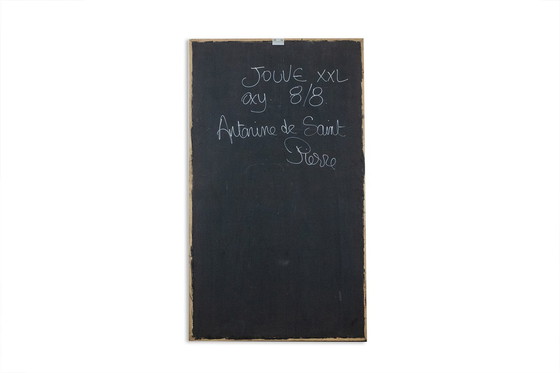 JOUVE XXL
oxy 8/8
Antonine de Saint
Pierre